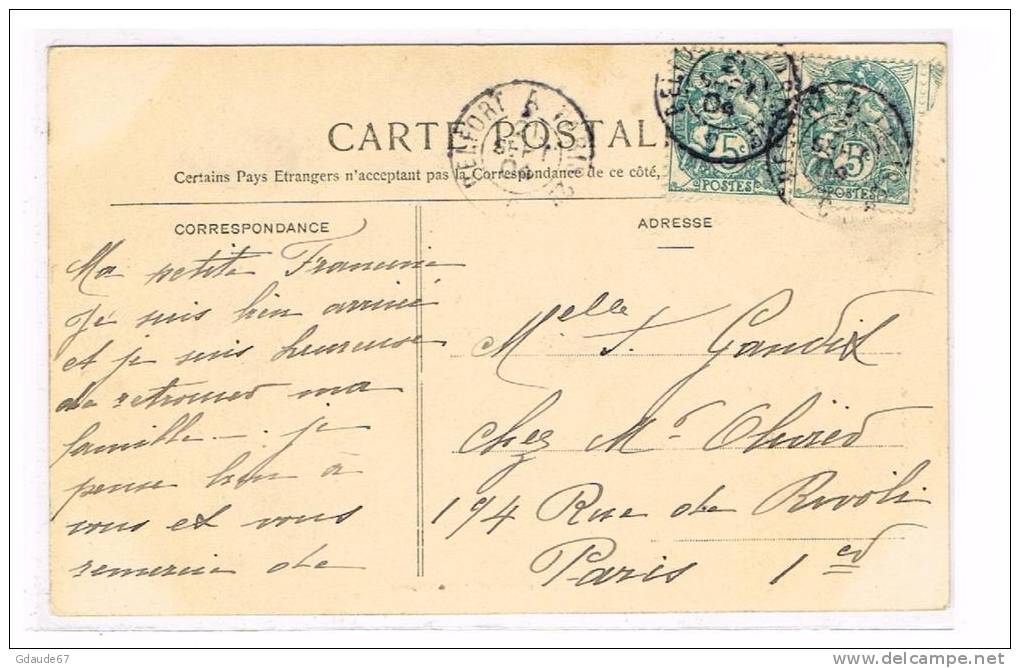 CARTE POSTALE
Certains Pays Etrangers n'acceptant pas la Correspondance de ce côté,
CORRESPONDANCE
ADRESSE
Ma petite Francine
Je suis bien arrivée
et je suis heureuse
de retrouver ma
famille —. je
pense bien à
vous et vous
remercie de
Melle F. Gaudit
chez Mr Olivier
194 Rue de Rivoli
Paris 1er
BELFORT A
21
SEPT
5
POSTES
5
POSTES
Gdaude67
www.delcampe.net